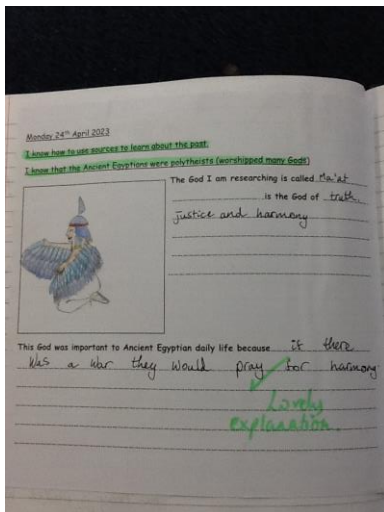 Monday 24th April 2023
I know how to use sources to learn about the past.
I know that the Ancient Egyptians were polytheists (worshipped many Gods)
The God I am researching is called Ma'at
is the God of truth,
justice and harmony
This God was important to Ancient Egyptian daily life because if there
was a war they would pray for harmony
Lovely
explanation.